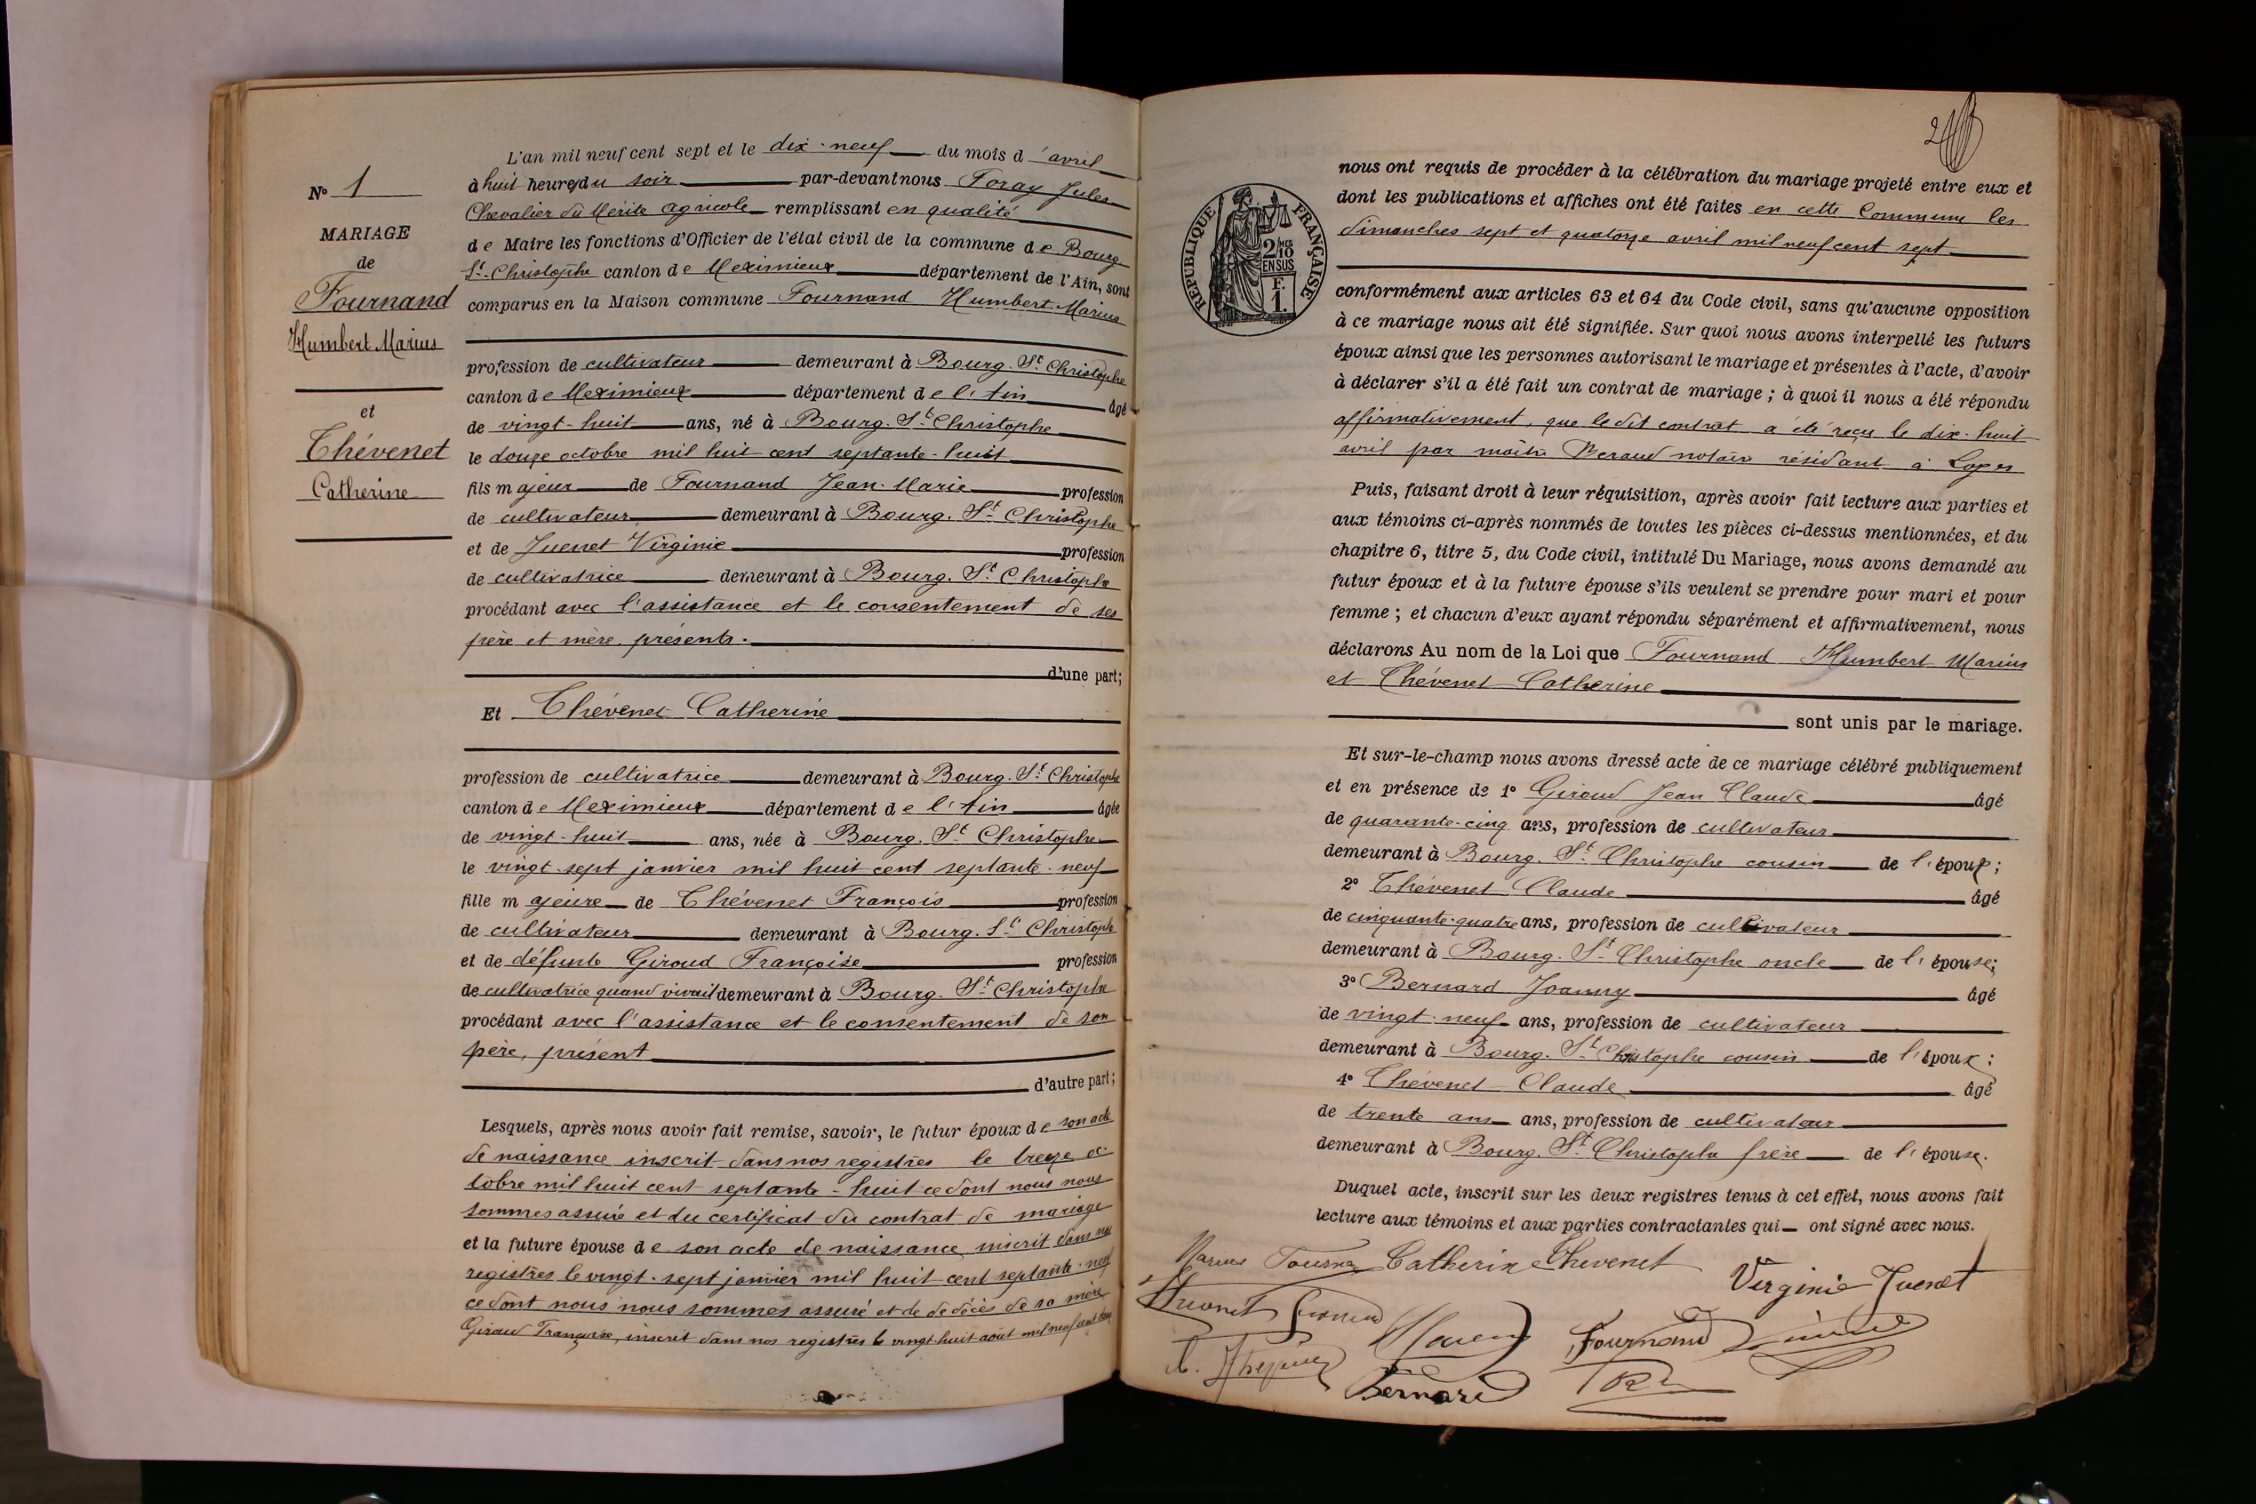 N° 1
MARIAGE
de
Fournand
Humbert Marius
et
Thévenet
Catherine
L'an mil neuf cent sept et le dix-neuf du mois d'avril
à huit heures du soir par-devant nous Foray Jules
Chevalier du Mérite agricole remplissant en qualité
de Maire les fonctions d'Officier de l'état civil de la commune de Bourg
St Christophe canton de Meximieux département de l'Ain, sont
comparus en la Maison commune Fournand Humbert Marius
profession de cultivateur demeurant à Bourg. St Christophe
canton de Meximieux département de l'Ain âgé
de vingt-huit ans, né à Bourg. St Christophe
le douze octobre mil huit cent septante-huit
fils majeur de Fournand Jean-Marie profession
de cultivateur demeurant à Bourg. St Christophe
et de Juenet Virginie profession
de cultivatrice demeurant à Bourg. St Christophe
procédant avec l'assistance et le consentement de ses
père et mère, présents.
d'une part;
Et Thévenet Catherine
profession de cultivatrice demeurant à Bourg. St Christophe
canton de Meximieux département de l'Ain âgée
de vingt-huit ans, née à Bourg. St Christophe
le vingt-sept janvier mil huit cent septante-neuf
fille majeure de Thévenet François profession
de cultivateur demeurant à Bourg. St Christophe
et de défunte Giroud Françoise profession
de cultivatrice quand vivait demeurant à Bourg. St Christophe
procédant avec l'assistance et le consentement de son
père, présent
d'autre part;
Lesquels, après nous avoir fait remise, savoir, le futur époux de son acte
de naissance inscrit dans nos registres le treize oc-
tobre mil huit cent septante-huit ce dont nous nous
sommes assuré et du certificat du contrat de mariage
et la future épouse de son acte de naissance inscrit dans nos
registres le vingt-sept janvier mil huit cent septante-neuf
ce dont nous nous sommes assuré et de décès de sa mère
Giroud Françoise, inscrit dans nos registres le vingt huit août mil neuf cent
RÉPUBLIQUE FRANÇAISE
2/10
EN SUS
F.
1.
nous ont requis de procéder à la célébration du mariage projeté entre eux et
dont les publications et affiches ont été faites en cette Commune les
dimanches sept et quatorze avril mil neuf cent sept
conformément aux articles 63 et 64 du Code civil, sans qu'aucune opposition
à ce mariage nous ait été signifiée. Sur quoi nous avons interpellé les futurs
époux ainsi que les personnes autorisant le mariage et présentes à l'acte, d'avoir
à déclarer s'il a été fait un contrat de mariage; à quoi il nous a été répondu
affirmativement, que le dit contrat a été reçu le dix-huit
avril par maître notaire résidant à Loyes
Puis, faisant droit à leur réquisition, après avoir fait lecture aux parties et
aux témoins ci-après nommés de toutes les pièces ci-dessus mentionnées, et du
chapitre 6, titre 5, du Code civil, intitulé Du Mariage, nous avons demandé au
futur époux et à la future épouse s'ils veulent se prendre pour mari et pour
femme; et chacun d'eux ayant répondu séparément et affirmativement, nous
déclarons Au nom de la Loi que Fournand Humbert Marius
et Thévenet Catherine
sont unis par le mariage.
Et sur-le-champ nous avons dressé acte de ce mariage célébré publiquement
et en présence de 1° Giroud Jean Claude âgé
de quarante-cinq ans, profession de cultivateur
demeurant à Bourg. St Christophe cousin de l'époux;
2° Thévenet Claude âgé
de cinquante-quatre ans, profession de cultivateur
demeurant à Bourg. St Christophe oncle de l'épouse;
3° Bernard Joanny âgé
de vingt-neuf ans, profession de cultivateur
demeurant à Bourg. St Christophe cousin de l'époux;
4° Thévenet Claude âgé
de trente ans ans, profession de cultivateur
demeurant à Bourg. St Christophe frère de l'épouse.
Duquel acte, inscrit sur les deux registres tenus à cet effet, nous avons fait
lecture aux témoins et aux parties contractantes qui ont signé avec nous.
Marius Catherine Thevenet
Virginie Juenet
Fournand
Bernard